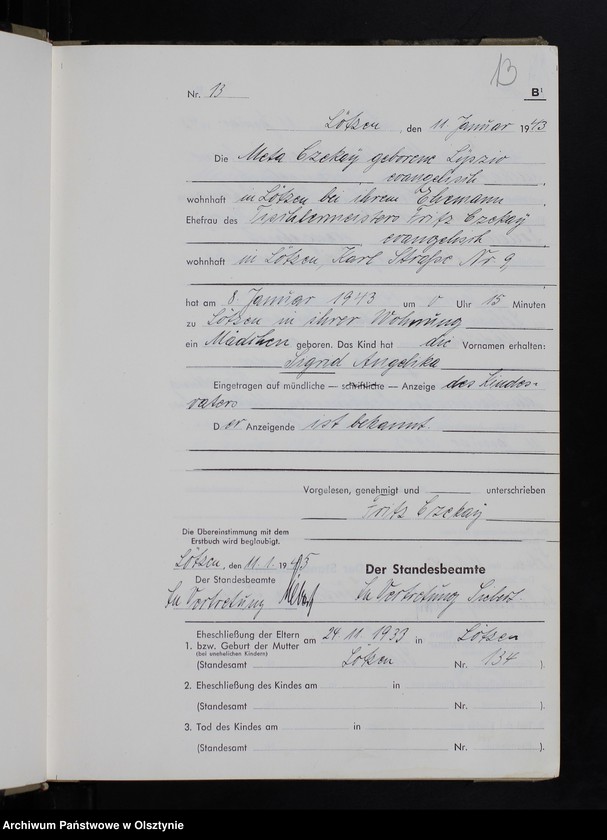 13
Nr. 13
B1
Lötzen, den 11 Januar 1943
Die Meta Czekay geborene
evangelisch
wohnhaft in Lötzen bei ihrem Ehemann
Ehefrau des Tischlermeisters Fritz Czekay
evangelisch
wohnhaft in Lötzen, Karl Straße Nr. 9,
hat am 8 Januar 1943 um 0 Uhr 15 Minuten
zu Lötzen in ihrer Wohnung
ein Mädchen geboren. Das Kind hat die Vornamen erhalten:
Sigrid Angelika
Eingetragen auf mündliche — schriftliche — Anzeige des Kindes-
vaters
Der Anzeigende ist bekannt.
Vorgelesen, genehmigt und unterschrieben
Fritz Czekay
Die Übereinstimmung mit dem
Erstbuch wird beglaubigt.
Lötzen, den 11.1. 19
Der Standesbeamte
In Vertretung
Der Standesbeamte
In Vertretung
Eheschließung der Eltern am 24 11 1933 in Lötzen
1. bzw. Geburt der Mutter
(bei unehelichen Kindern)
(Standesamt Lötzen Nr. 134 ).
2. Eheschließung des Kindes am in
(Standesamt Nr. ).
3. Tod des Kindes am in
(Standesamt Nr. ).
Archiwum Państwowe w Olsztynie
Archiwum Państwowe w Olsztynie